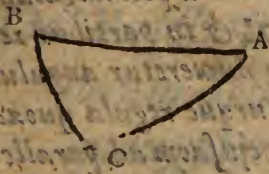 B
A
C